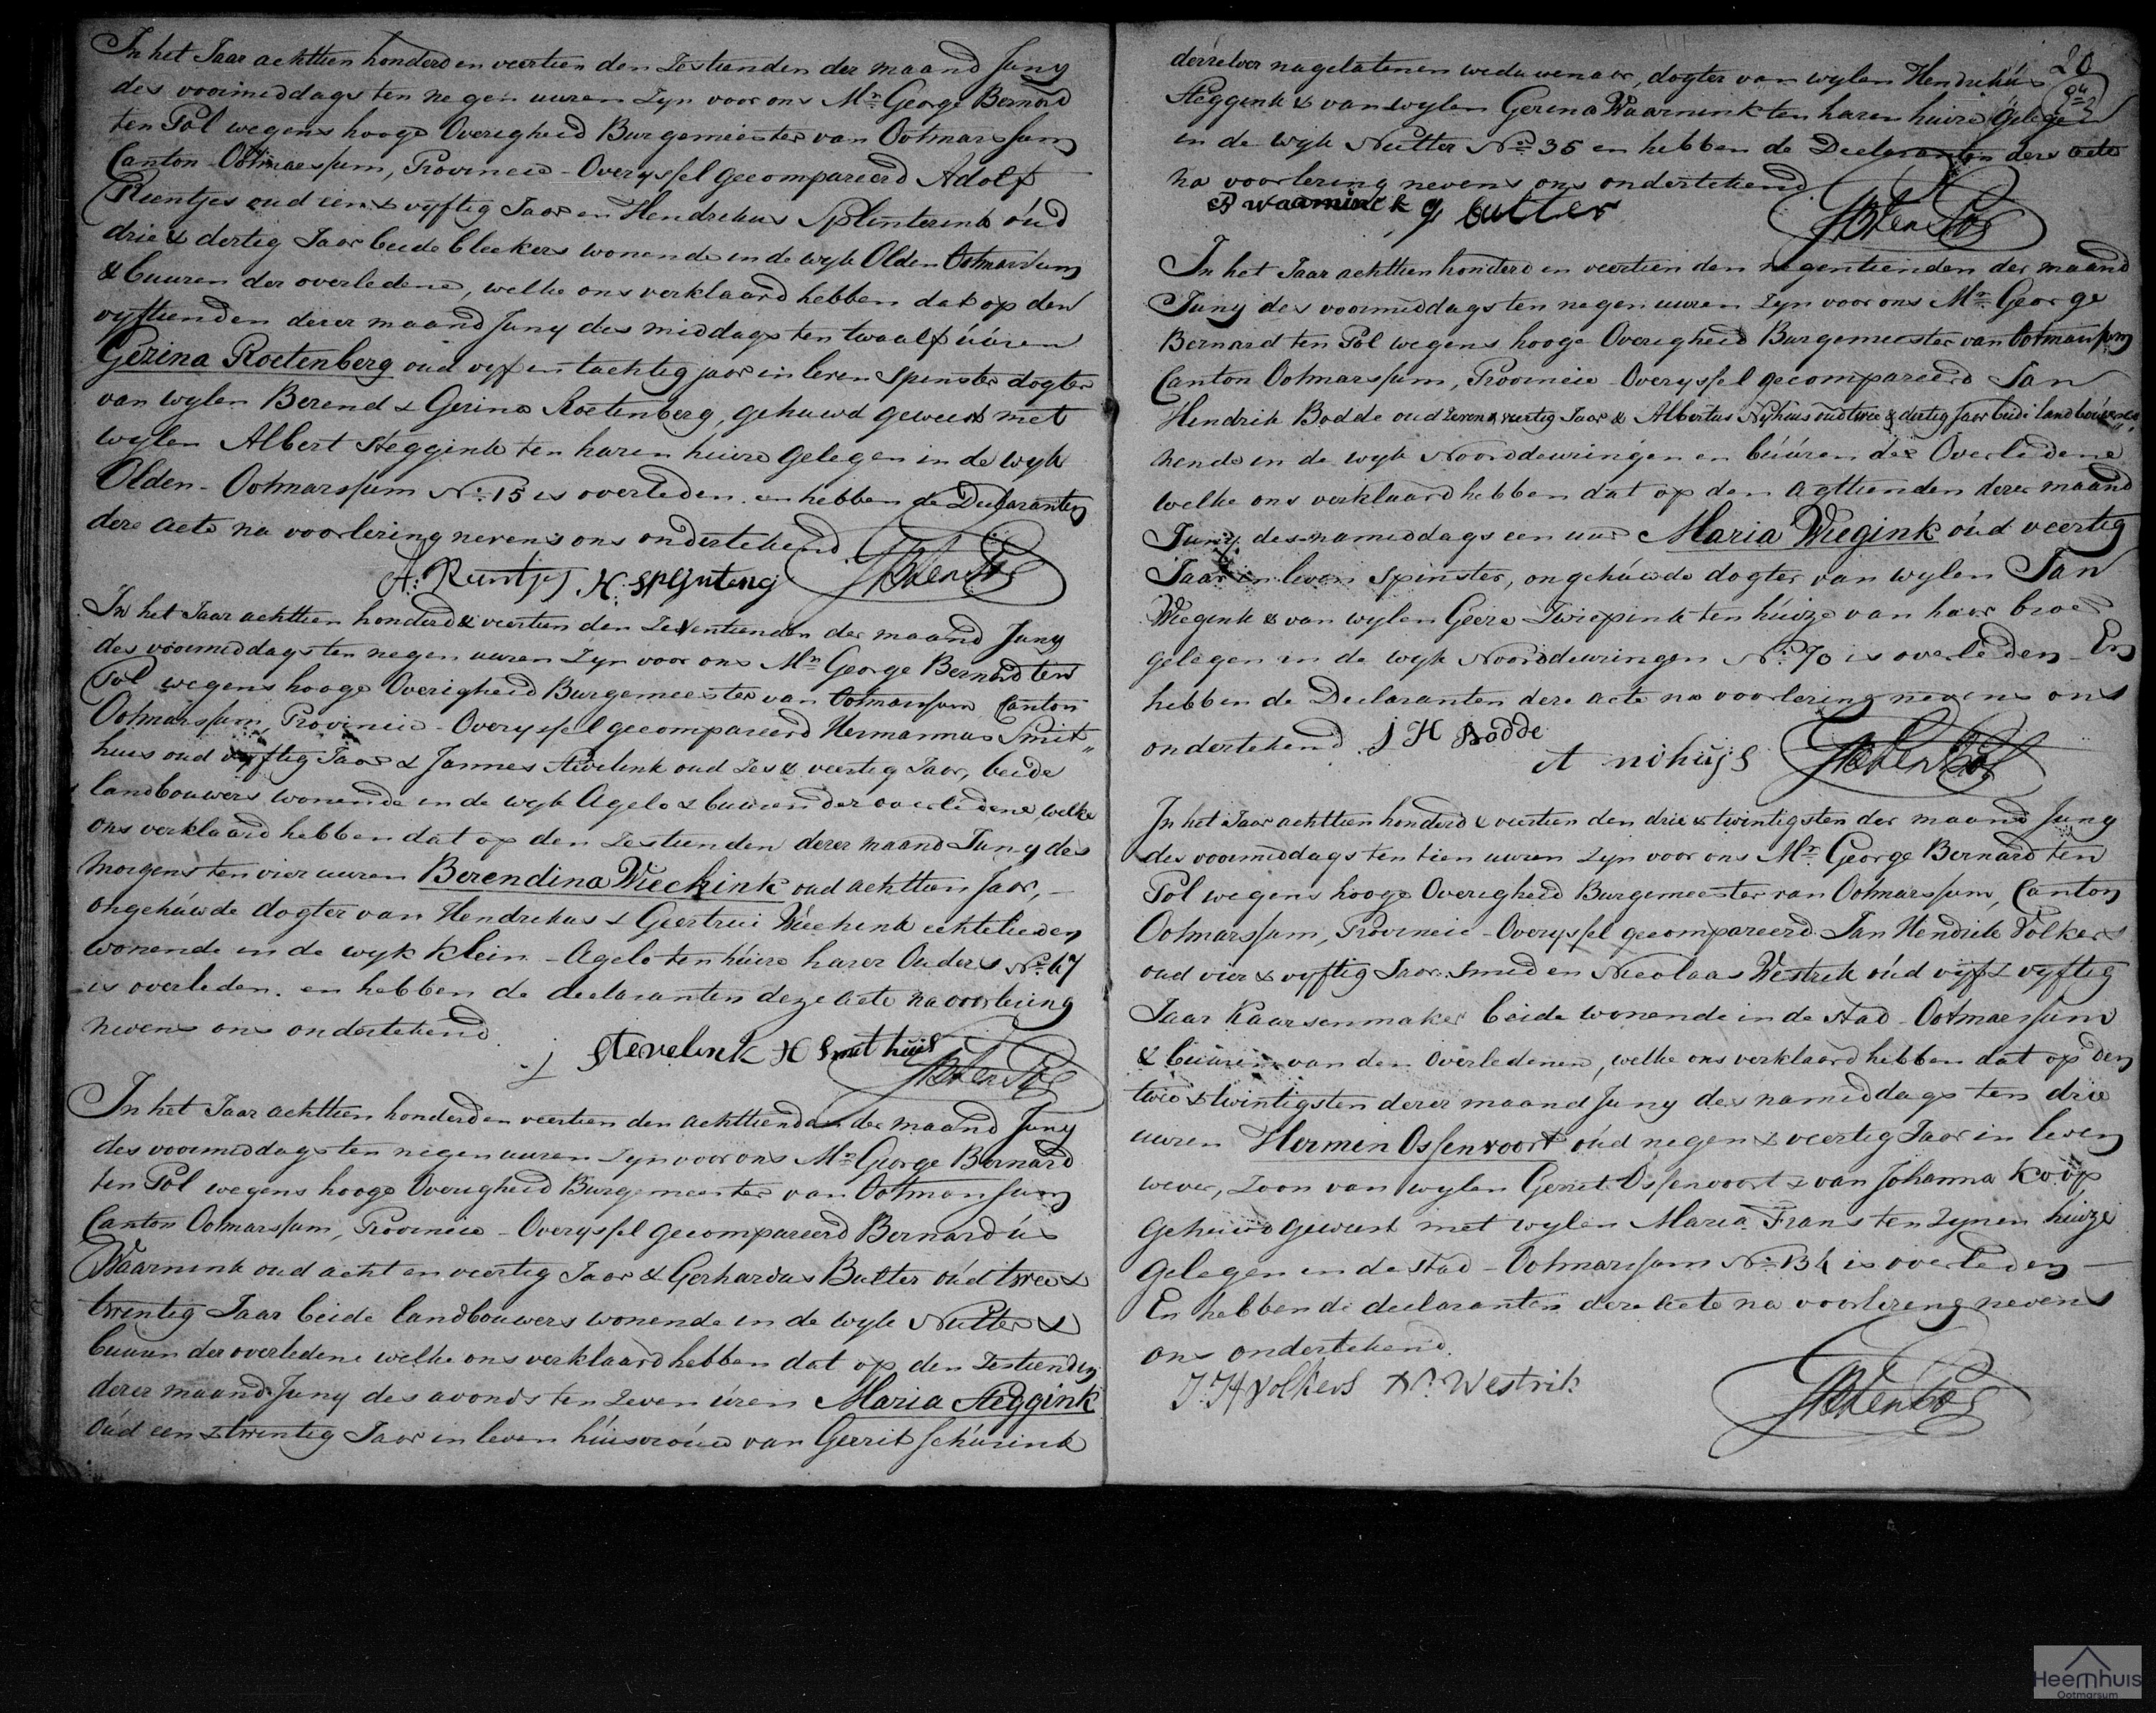 In het Jaar achttien honderd en veertien den Zestienden der maand Juny
des voormiddags ten negen uuren Zyn voor ons Mr. George Bernard
ten Pol wegens hooge Overigheid Burgemeester van Ootmarssum
Canton Ootmarssum, Provincie - Overyssel gecompareerd Adolf
Reentjes oud een & vyftig Jaar en Hendrikus Splinterink oud
drie & dertig Jaar beide bleekers wonende in de wyk Olden Ootmarssum
& buuren der overledene, welke ons verklaard hebben dat op den
vyftienden dezer maand Juny des middags ten twaalf uuren
Gezina Roetenberg oud vyf en tachtig jaar in leven Spinster dogter
van wylen Berend & Gerina Roetenberg, gehuwd geweest met
wylen Albert Steggink ten haren huize gelegen in de wyk
Olden - Ootmarssum No. 15 is overleden. en hebben de Declaranten
deze acte na voorlezing nevens ons ondertekend
A: Reintjes H: Splijnteng GBtenPol
In het Jaar achttien honderd & veertien den Zeventienden der maand Juny
des voormiddags ten negen uuren Zyn voor ons Mr. George Bernard ten
Pol wegens hooge Overigheid Burgemeester van Ootmarssum Canton
Ootmarssum, Provincie - Overyssel gecompareerd Hermannus Smit„
huis oud vyftig Jaar & Jannes Stevelink oud Zes & veertig Jaar, beide
landbouwers wonende in de wyk Agelo & buuren der overledene welke
ons verklaard hebben dat op den Zestienden dezer maand Juny des
morgens ten vier uuren Berendina Wiechink oud achttien Jaar, -
ongehuwde dogter van Hendrikus & Geertrui Wiechink echtelieden
wonende in de wyk Klein - Agelo ten huize harer Ouders No. 67
is overleden. en hebben de declaranten deze acte na voorlezing
nevens ons ondertekend
j Stevelink H Smithuis GBtenPol
In het Jaar achttien honderd en veertien den achttienden der maand Juny
des voormiddags ten negen uuren Zyn voor ons Mr. George Bernard
ten Pol wegens hooge Overigheid Burgemeester van Ootmarssum
Canton Ootmarssum, Provincie - Overyssel gecompareerd Bernardus
Waarnink oud acht en veertig Jaar & Gerhardus Butter oud twee &
twintig Jaar beide landbouwers wonende in de wyk Nutter &
buuren der overledene welke ons verklaard hebben dat op den Zestienden
dezer maand Juny des avonds ten Zeven uren Maria Steggink
oud een & twintig Jaar in leven huisvrouw van Gerrit Schurink
20
derzelver nagelatenen weduwenaar, dogter van wylen Hendrikus
Steggink & van wylen Gerina Waarnink ten haren huize gelegen
in de wyk Nutter No. 35 en hebben de Declaranten deze acte
na voorlezing nevens ons ondertekend
B waarninck g butter GBtenPol
In het Jaar achttien honderd en veertien den negentienden der maand
Juny des voormiddags ten negen uuren Zyn voor ons Mr. George
Bernard ten Pol wegens hooge Overigheid Burgemeester van Ootmarssum
Canton Ootmarssum, Provincie - Overyssel gecompareerd Jan
Hendrik Bodde oud Zeven & veertig Jaar & Albertus Nyhuis oud twee & dertig Jaar beide landbouwers
nende in de wyk Noorddeuringen en buuren der Overledene
welke ons verklaard hebben dat op den agttienden dezer maand
Juny des namiddags een uur Maria Wiegink oud veertig
Jaar in leven Spinster, ongehuwde dogter van wylen Jan
Wiegink & van wylen Geere Twiepink ten huize van haar broer
gelegen in de wyk Noorddeuringen No. 70 is overleden - En
hebben de Declaranten deze acte na voorlezing nevens ons
ondertekend J H Bodde
A nihuijs GBtenPol
In het Jaar achttien honderd & veertien den drie & twintigsten der maand Juny
des voormiddags ten tien uuren Zyn voor ons Mr. George Bernard ten
Pol wegens hooge Overigheid Burgemeester van Ootmarssum, Canton
Ootmarssum, Provincie - Overyssel gecompareerd Jan Hendrik Volkers
oud vier & vyftig Jaar Smid en Nicolaas Westrik oud vyf & vyftig
Jaar Kaarsenmaker beide wonende in de stad - Ootmarssum
& buuren van den overledenen, welke ons verklaard hebben dat op den
twee & twintigsten dezer maand Juny des namiddags ten drie
uuren Hermen Ossenvoort oud negen & veertig Jaar in leven
wever, Zoon van wylen Gerrit Ossenvoort & van Johanna Koop
gehuwd geweest met wylen Maria Frans ten Zynen huize
gelegen in de stad - Ootmarssum No. 134 is overleden -
En hebben de declaranten deze acte na voorlezing nevens
ons ondertekend.
J. H Volkers N. Westrik GBtenPol
Heemhuis
Ootmarsum